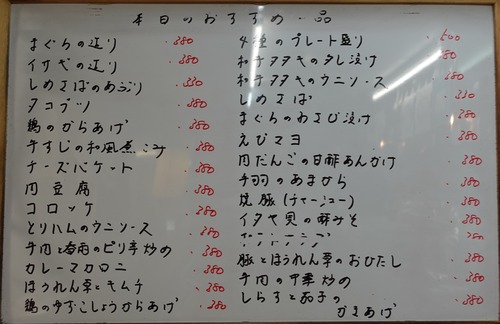 本日のおすすめ一品
まぐろの造り 380
イサギの造り 380
しめさばのあぶり 330
タコブツ 380
鶏のからあげ 380
牛すじの和風煮こみ 380
チーズバケット 380
肉豆腐 380
コロッケ 380
とりハムのウニソース 380
牛肉と春雨のピリ辛炒め 380
カレーマカロニ 380
ほうれん草とキムチ 380
鶏のゆずこしょうからあげ 380
4種のプレート盛り 500
和牛タタキのタレ漬け 380
和牛タタキのウニソース 380
しめさば 330
まぐろのわさび漬け 380
えびマヨ 380
肉だんごの甘酢あんかけ 380
手羽のあまから 380
焼豚(チャーシュー) 380
イタヤ貝の酢みそ 380
豚とほうれん草のおひたし 380
牛肉の 炒め 380
しらすと茄子の 380
かきあげ